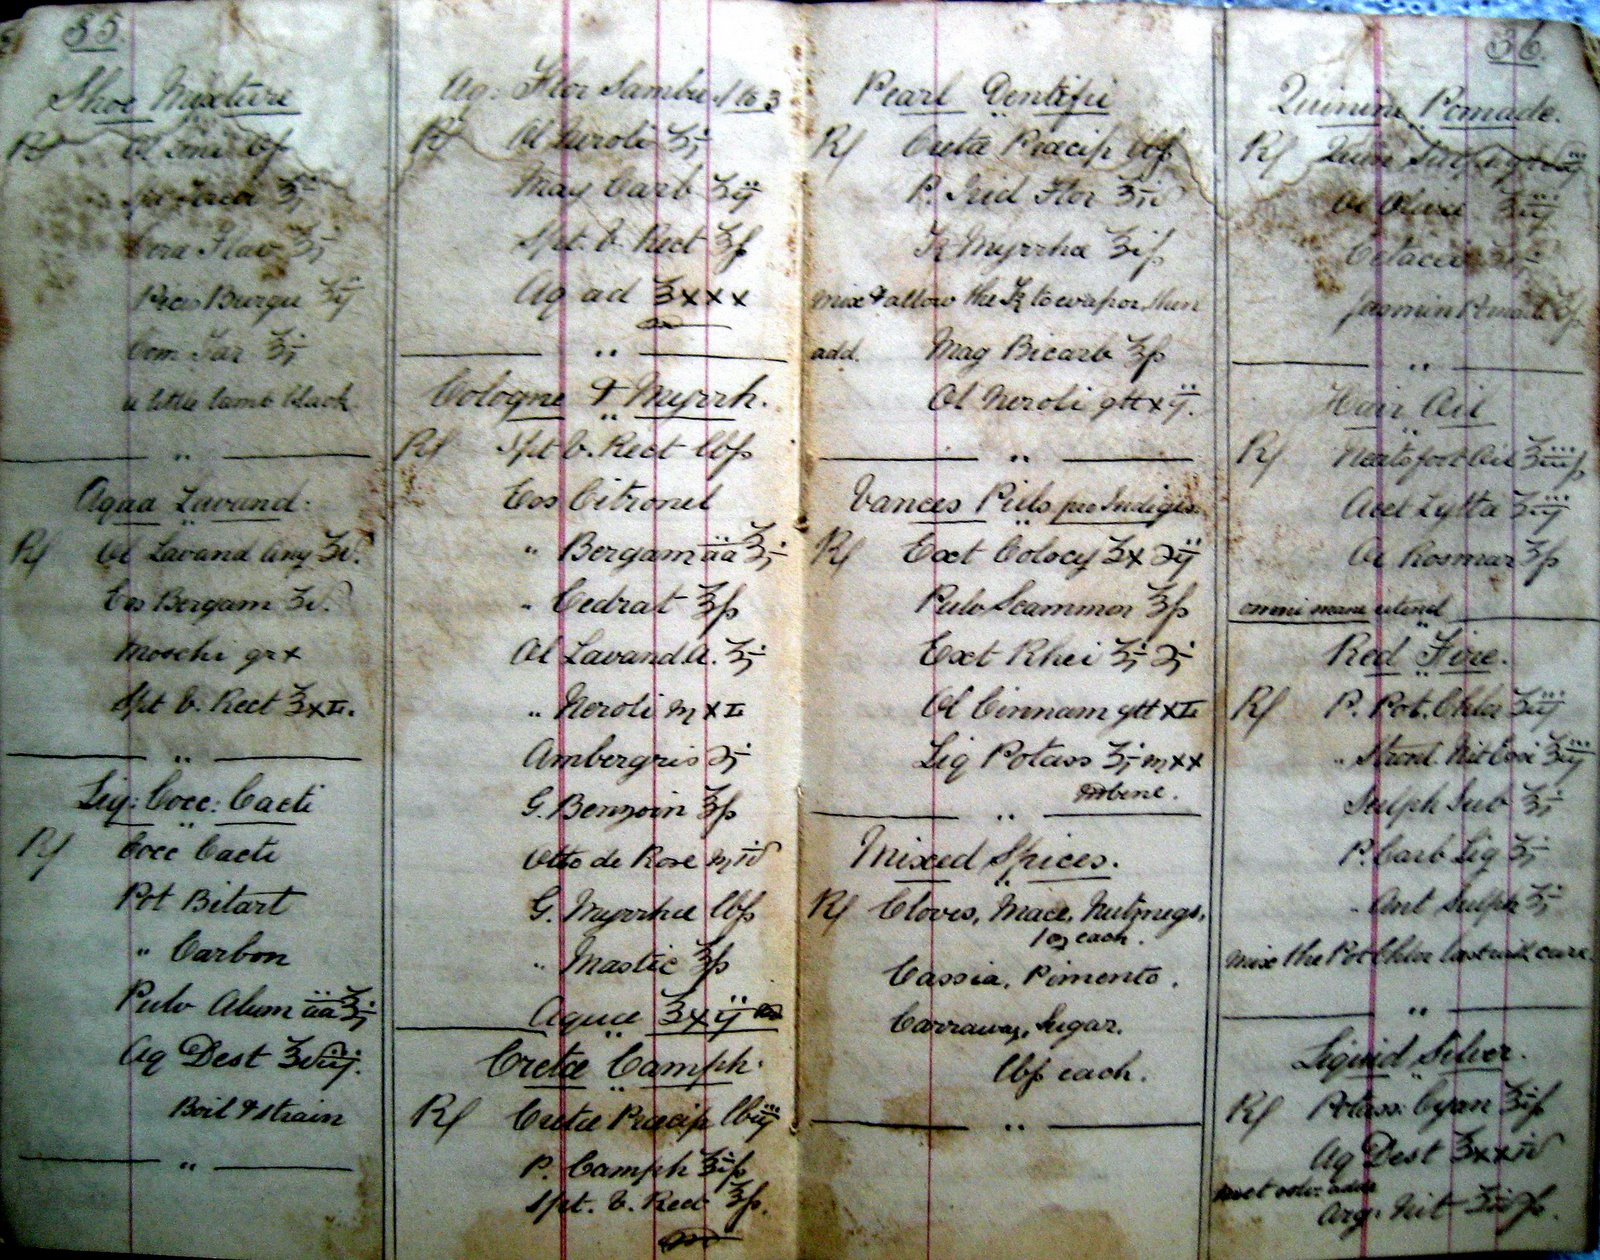 35.
Shoe Mixture
Rx Ol Lini lbſs
Cera Flav ʒj
Pix Burgu ʒij
Com Tar ʒj
a little lamb black
"
Aqua Lavand:
Rx Ol Lavand Ang ʒv.
Ess Bergam ʒv.
Moschi gr x
Spt V. Rect ʒxII.
"
Liq: Cocc: Cacti
Rx Cocc Cacti
Pot Bitart
" Carbon
Pulv Alum āā ʒj
Aq Dest
Boil & strain
"
Aq: Flor Sambu 1 to 3
Rx Ol Neroli ʒj
Mag Carb ʒij
Spt V. Rect ʒſs
Aq ad ʒxxx
"
Cologne & Myrrh.
Rx Spt V. Rect lbſs
Ess Citronel
" Bergam āā ʒj
" Cedrat ʒſs
Ol Lavand A. ʒj
" Neroli ♏ xII
Ambergris ℈j
G. Benzoin ʒſs
Otto de Rose ♏ iv
G. Myrrhae lbſs
" Mastic ʒſs
Aqua ʒxij
Cretæ Camph.
Rx Cretæ Præcip lbiij
P. Camph ʒiſs
Spt. V. Rect ʒſs.
Pearl Dentifri
Rx Cretæ Præcip lbſs
P. Irid Flor ʒii
Tr Myrrhæ ʒiſs
mix & allow the Tr to evapor, then
add. Mag Bicarb ʒſs
Ol Neroli gtt xij.
"
Vances Pills pro Indiges
Rx Ext Colocy ʒx ℈ij
Pulv Scammon ʒſs
Ext Rhei ʒj ℈j
Ol Cinnam gtt xII
Liq Potass ʒj ♏ xx
"
Mixed Spices.
Rx Cloves, Mace, Nutmegs,
1 oz each.
Cassia, Pimento.
Carraway, Sugar.
lbſs each.
"
36.
Quinine Pomade.
Rx Quin Sulph
Ol Olivæ ʒiij
Cetacei
Jasmin Pomade ʒſs
"
Hair Oil
Rx Neatsfoot Oil ʒiiiſs
Acet Lytta ʒiij
Ol Rosmar ʒſs
omni mane utend
Red Fire.
Rx P. Pot. Chlor ʒiij
" Stront. Nit ʒiij
Sulph Sub ʒj
P. Carb Lig ʒj
" Ant Sulph ʒj
Mix the Pot Chlor last with care
"
Liquid Silver.
Rx Potass: Cyan ʒiſs
Aq Dest ʒxxiv
Arg: Nit